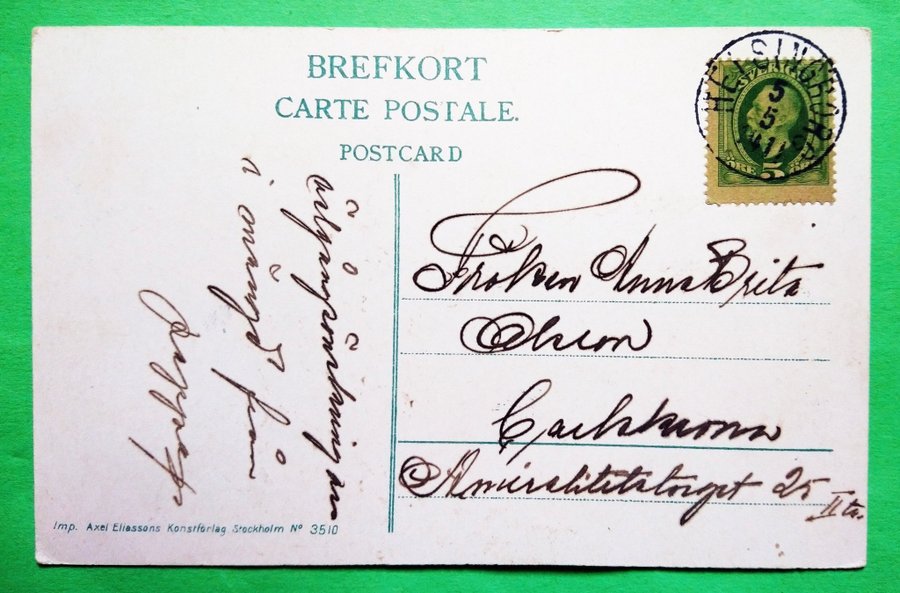 BREFKORT
CARTE POSTALE.
POSTCARD
HELSINGBORG
5
5
11
SVERIGE
5
Fröken Anna Brita
Olsson
Carlskrona
Amiralitetstorget 25
II tr.
i mängd från
Imp. Axel Eliassons Konstförlag Stockholm Nº 3510